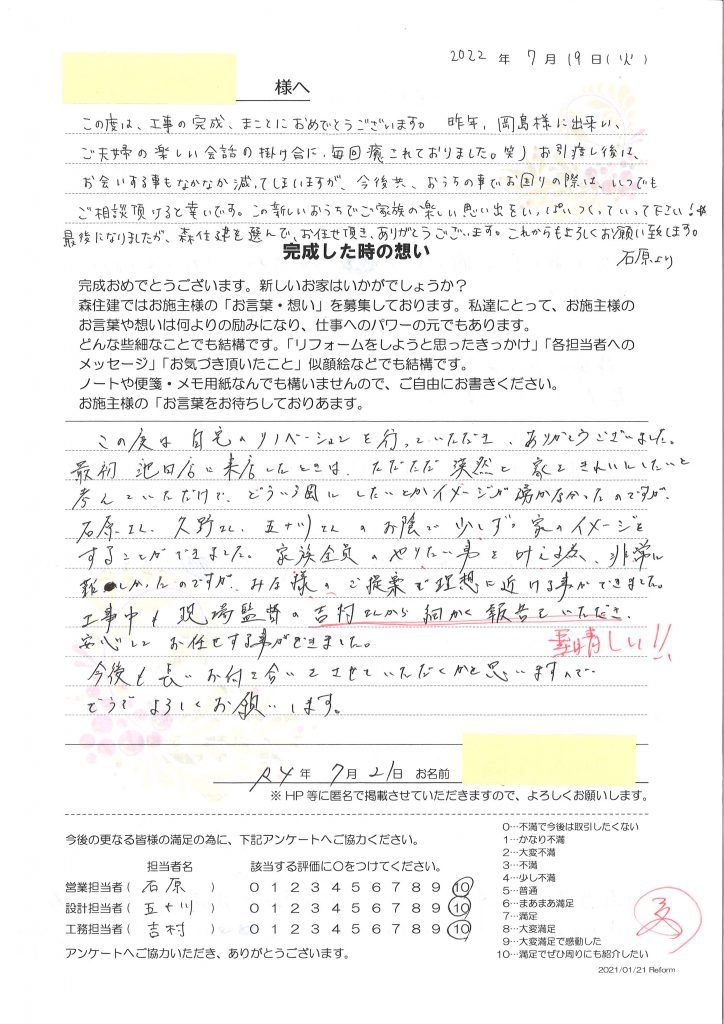 2022 年 7月19日(火)
様へ
この度は、工事の完成、まことにおめでとうございます。 昨年、岡島様に出来い、
ご夫婦の楽しい会話の掛け合に、毎回癒されておりました。笑) お引渡し後は、
お会いする事もなかなか減ってしまいますが、今後共、おうちの事でお困りの際は、いつでも
ご相談頂けると幸いです。この新しいおうちでご家族の楽しい思い出をいっぱいつくっていって下さい!
最後になりましたが、森住建を選んで、お任せ頂き、ありがとうございます。これからもよろしくお願い致します。
石原より
完成した時の想い
完成おめでとうございます。新しいお家はいかがでしょうか？
森住建ではお施主様の「お言葉・想い」を募集しております。私達にとって、お施主様の
お言葉や想いは何よりの励みになり、仕事へのパワーの元でもあります。
どんな些細なことでも結構です。「リフォームをしようと思ったきっかけ」「各担当者への
メッセージ」「お気づき頂いたこと」似顔絵などでも結構です。
ノートや便箋・メモ用紙なんでも構いませんので、ご自由にお書きください。
お施主様の「お言葉をお待ちしておりあます。
この度は自宅のリノベーションを行っていただき、ありがとうございました。
最初 池田店に来店したときは、ただただ漠然と家をきれいにしたいと
考えていただけで、どういう風にしたいとかイメージが湧かなかったのですが、
石原さん、久野さん、五十川さんのお陰で少しずつ家のイメージを
することができました。家族全員のやりたい事を叶える為、非常に
難しかったのですが、みな様のご提案で理想に近ける事ができました。
工事中も現場監督の吉村さんから細かく報告をいただき、
安心してお任せする事ができました。
素晴しい!!
今後も長いお付き合いをさせていただくかと思いますので
どうぞよろしくお願いします。
R4年 7月21日 お名前
※HP等に匿名で掲載させていただきますので、よろしくお願いします。
今後の更なる皆様の満足の為に、下記アンケートへご協力ください。
担当者名 該当する評価に○をつけてください。
営業担当者( 石原 ) 0 1 2 3 4 5 6 7 8 9 10
設計担当者( 五十川 ) 0 1 2 3 4 5 6 7 8 9 10
工務担当者( 吉村 ) 0 1 2 3 4 5 6 7 8 9 10
アンケートへご協力いただき、ありがとうございます。
0…不満で今後は取引したくない
1…かなり不満
2…大変不満
3…不満
4…少し不満
5…普通
6…まあまあ満足
7…満足
8…大変満足
9…大変満足で感動した
10…満足でぜひ周りにも紹介したい
2021/01/21 Reform